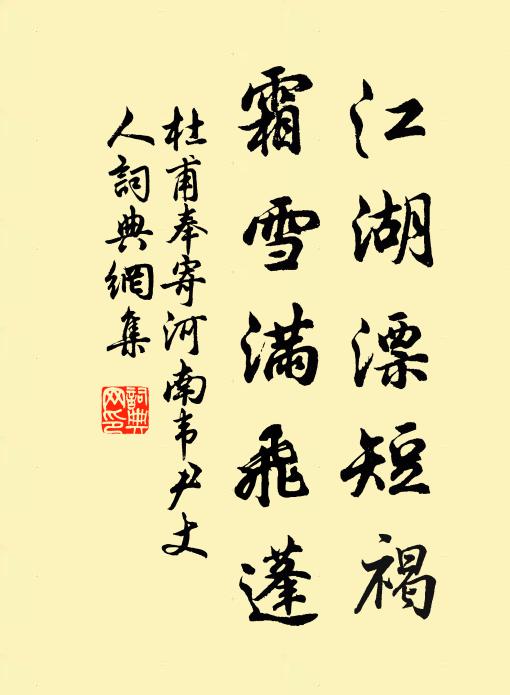 江湖漂短褐
霜雪满飛蓬
杜甫奉寄河南韦尹丈
人詞典網集
詞典
网印